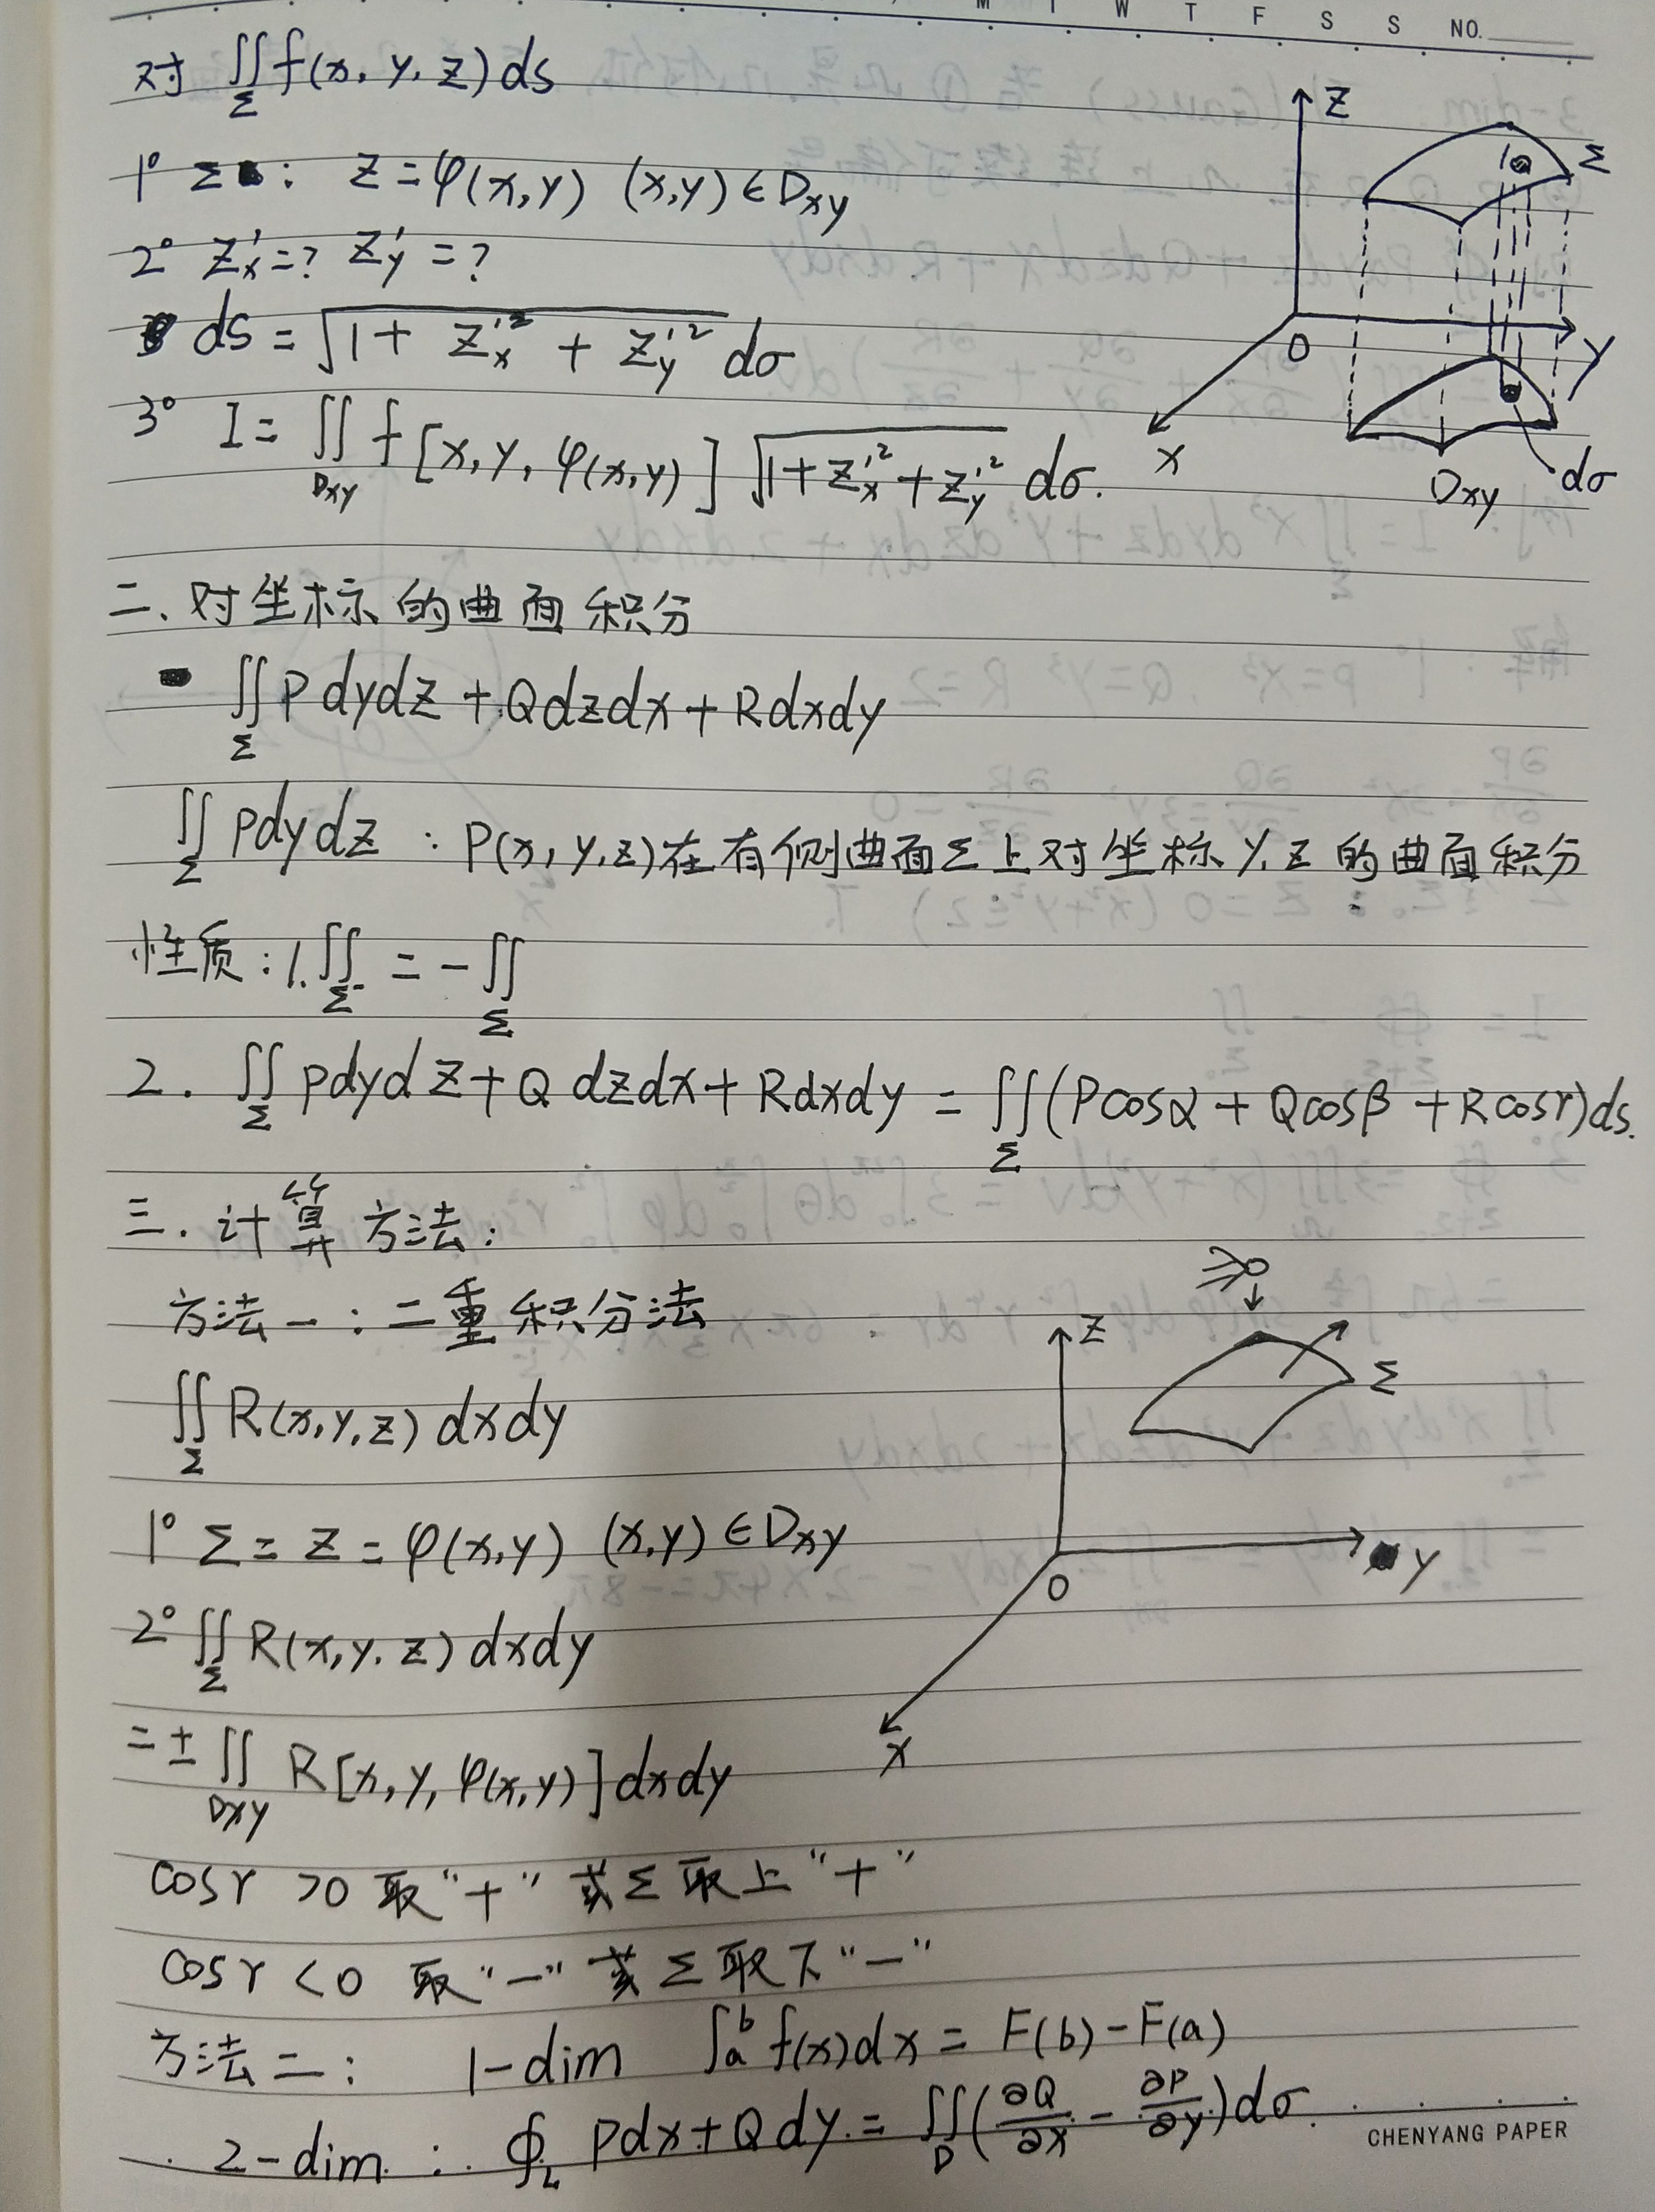 M T W T F S S NO.
对 ∬_Σ f(x, y, z) ds
1° Σ: z = φ(x,y) (x,y)∈Dxy
2° Z'x=? Z'y=?
ds = √(1 + Z'x² + Z'y²) dσ
3° I = ∬_Dxy f[x, y, φ(x,y)] √(1+Z'x²+Z'y²) dσ.
Z
Σ
0
y
x
Dxy
dσ
二、对坐标的曲面积分
∬_Σ Pdydz + Qdzdx + Rdxdy
∬_Σ Pdydz : P(x, y, z)在有侧曲面Σ上对坐标y, z的曲面积分
性质: 1. ∬_Σ⁻ = -∬_Σ
2. ∬_Σ Pdydz + Qdzdx + Rdxdy = ∬_Σ (Pcosα + Qcosβ + Rcosγ)ds.
三. 计算方法:
方法一: 二重积分法
∬_Σ R(x,y,z) dxdy
1° Σ = z = φ(x,y) (x,y)∈Dxy
2° ∬_Σ R(x,y,z) dxdy
= ± ∬_Dxy R[x, y, φ(x,y)] dxdy
Z
Σ
0
y
x
cosγ >0 取“+” 或Σ取上“+”
cosγ <0 取“-” 或Σ取下“-”
方法二: 1-dim ∫_a^b f(x)dx = F(b)-F(a)
2-dim: ∮_L Pdx+Qdy = ∬_D (∂Q/∂x - ∂P/∂y)dσ
CHENYANG PAPER